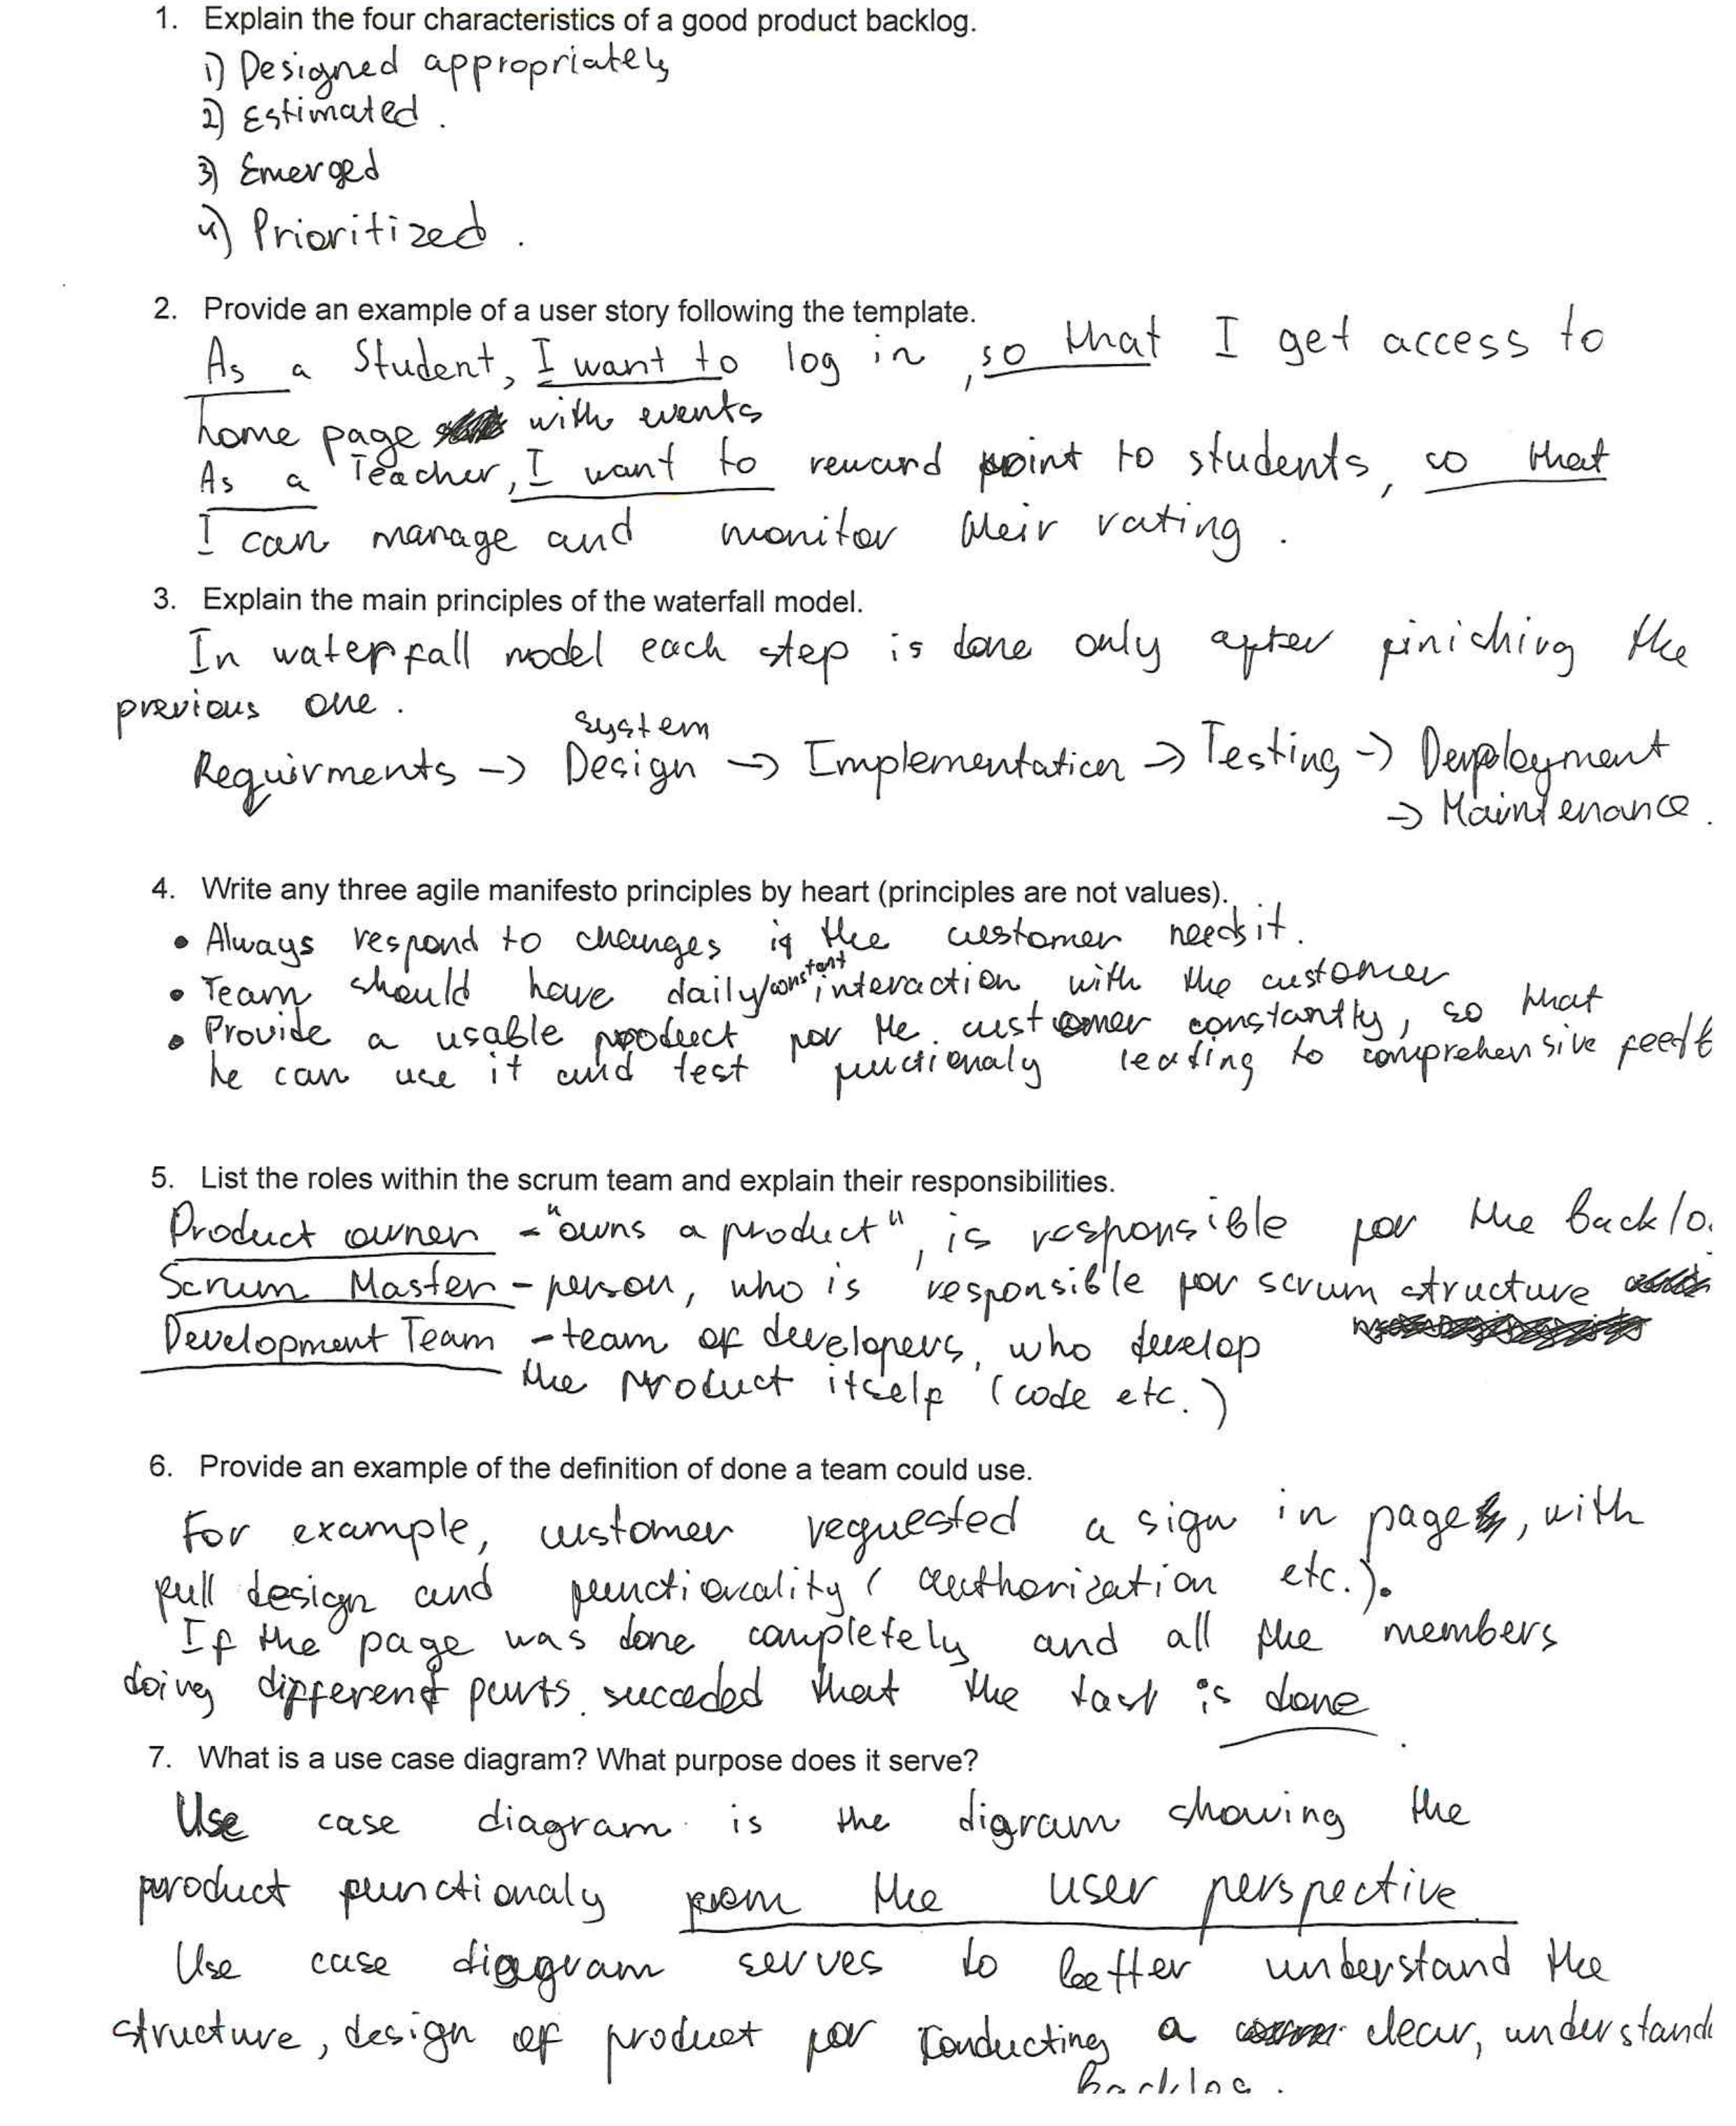 1. Explain the four characteristics of a good product backlog.
1) Designed appropriately
2) Estimated.
3) Emerged
4) Prioritized.
2. Provide an example of a user story following the template.
As a Student, I want to log in, so that I get access to
home page with events
As a Teacher, I want to reward point to students, so that
I can manage and monitor their rating.
3. Explain the main principles of the waterfall model.
In waterfall model each step is done only after finiching the
previous one.
system
Requirments -> Design -> Implementation -> Testing -> Deployment
-> Maintenance.
4. Write any three agile manifesto principles by heart (principles are not values).
• Always respond to changes if the customer needs it.
• Team should have daily/constant interaction with the customer
• Provide a usable product for the customer constantly, so that
he can use it and test functionaly leading to comprehensive feedb
5. List the roles within the scrum team and explain their responsibilities.
Product owner - "owns a product", is responsible for the backlo
Scrum Master - person, who is responsible for scrum structure
Development Team - team of developers, who develop
the product itself (code etc.)
6. Provide an example of the definition of done a team could use.
For example, customer requested a sign in page, with
full design and functionality (authorization etc.).
If the page was done completely and all the members
doing different parts succeded that the task is done.
7. What is a use case diagram? What purpose does it serve?
Use case diagram is the digram showing the
product functionaly from the user perspective
Use case diagram serves to better understand the
structure, design of product for conducting a clear, understand
backlog.